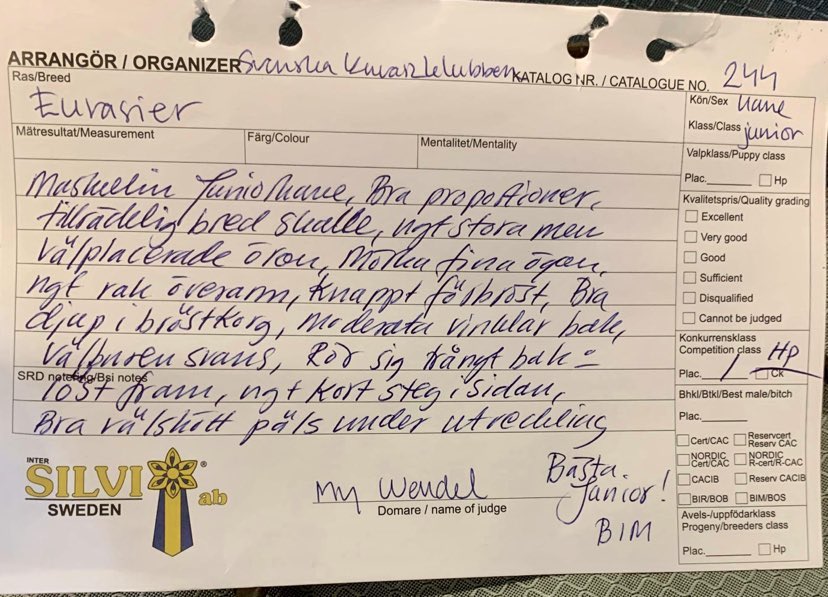 ARRANGÖR / ORGANIZER Svenska Kuvaszklubben KATALOG NR. / CATALOGUE NO. 244
Ras/Breed
Eurasier
Kön/Sex Hane
Klass/Class junior
Mätresultat/Measurement Färg/Colour Mentalitet/Mentality
Maskulin Juniorhane, Bra propotioner,
tillräcklig bred skalle, ngt stora men
välplacerade öron, Mörka fina ögon,
ngt rak överarm, Knappt förbröst, Bra
djup i bröstkorg, moderata vinklar bak,
välburen svans, Rör sig trångt bak =
SRD notering/Bsi notes
löst fram, ngt kort steg i sidan,
Bra välskött päls under utveckling
Valpklass/Puppy class
Plac. Hp
Kvalitetspris/Quality grading
Excellent
Very good
Good
Sufficient
Disqualified
Cannot be judged
Konkurrensklass
Competition class HP
Plac. 1 Ck
Bhkl/Btkl/Best male/bitch
Plac.
Cert/CAC Reservcert Reserv CAC
NORDIC Cert/CAC NORDIC R-cert/R-CAC
CACIB Reserv CACIB
BIR/BOB BIM/BOS
Avels-/uppfödarklass
Progeny/breeders class
Plac. Hp
INTER
SILVI ® ab
SWEDEN
My Wendel
Domare / name of judge
Bästa
Junior!
BIM